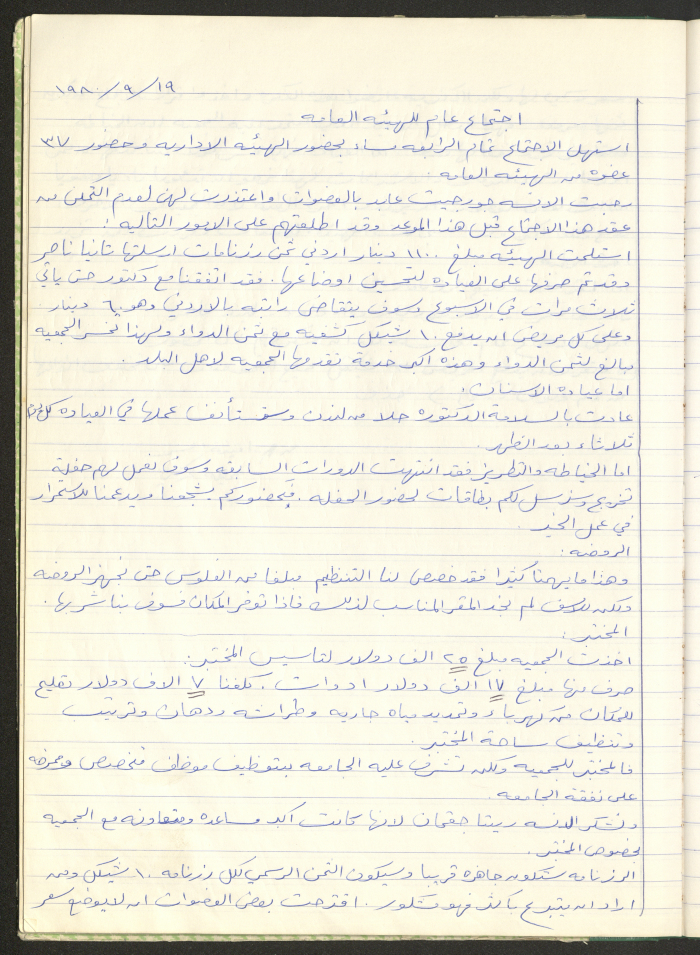 ١٩٨٠/٩/١٩
اجتماع عام للهيئه العامه
استهل الاجتماع تمام الرابعه مساء بحضور الهيئه الاداريه وحضور ٣٧
عضوه من الهيئه العامه.
رحبت الانسه جورجيت عابد بالعضوات واعتذرت لهن لعدم التمكن من
عقد هذا الاجتماع قبل هذا الموعد وقد اطلعتهم على الامور التاليه:
استلمت الهيئه مبلغ ١١٠٠ دينار اردني ثمن رزنامات ارسلتها تانيا ناصر
وقد تم صرفها على العياده لتحسين اوضاعها. فقد اتفقنا مع دكتور حتى يأتي
ثلاث مرات في الاسبوع وسوف يتقاضى راتبه بالاردني وهو ٦٠ دينار.
وعلى كل مريض ان يدفع ١٠ شيكل كشفيه مع ثمن الدواء ولهذا تخسر الجمعيه
مبالغ لثمن الدواء وهذه اكبر خدمة تقدمها الجمعيه لاهل البلد.
اما عيادة الاسنان:
عادت بالسلامة الدكتوره حلا من لندن وستستأنف عملها في العياده كل
ثلاثاء بعد الظهر.
اما الخياطه والتطريز فقد انتهت الدورات السابقه وسوف نعمل لهم حفلة
تخريج وسنرسل لكم بطاقات لحضور الحفله. فحضوركم يشجعنا ويدعمنا للاستمرار
في عمل الخير.
الروضه:
وهذا ما يهمنا كثيرا فقد خصص لنا التنظيم مبلغا من الفلوس حتى نجهز الروضه
ولكن للاسف لم نجد المقر المناسب لذلك فاذا توفر المكان فسوف نباشر بها.
المختبر:
اخذت الجمعيه مبلغ ٢٥ الف دولار لتاسيس المختبر:
صرف منها مبلغ ١٧ الف دولار ادوات. كلفنا ٧ الاف دولار تصليح
للمكان من كهرباء وتمديد مياه جاريه وطراشه ودهان وترتيب
وتنظيف ساحة المختبر.
فالمختبر للجمعيه ولكن تشرف عليه الجامعه بتوظيف موظف متخصص وممرضه
على نفقة الجامعه.
ونشكر الانسه ريتا جقمان لانها كانت اكبر مساعده ومتعاونه مع الجمعيه
بخصوص المختبر.
الرزنامه ستكون جاهزه قريبا وسيكون الثمن الرسمي لكل رزنامه ١٠ شيكل ومن
اراد ان يتبرع باكثر فهو مشكور. اقترحت بعض العضوات ان لا يوضع سعر